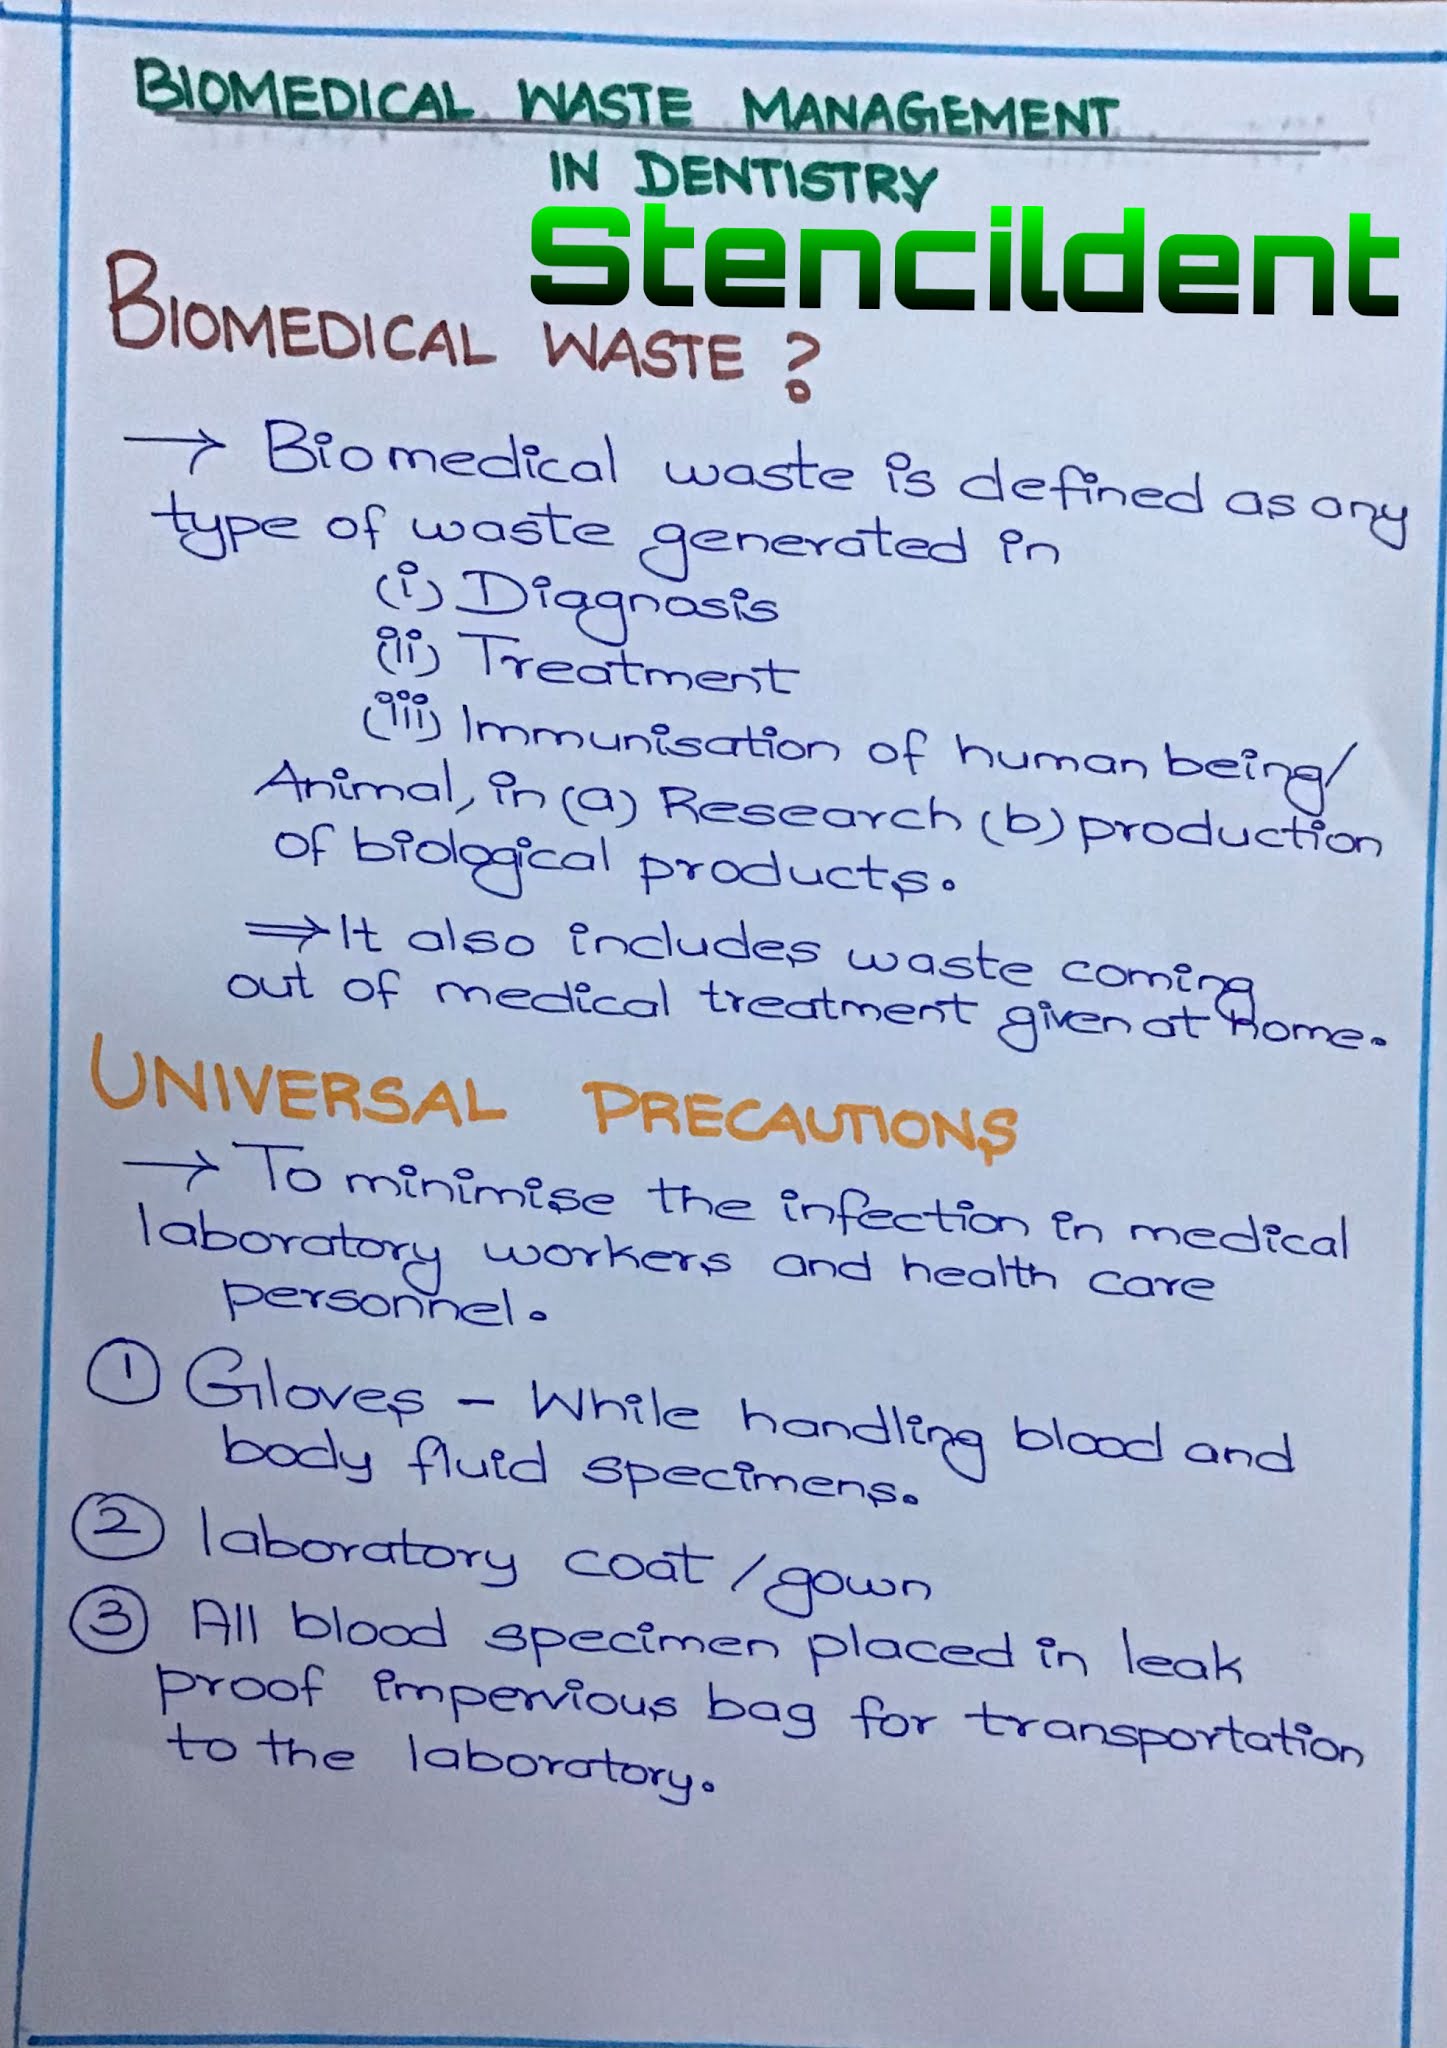 BIOMEDICAL WASTE MANAGEMENT
IN DENTISTRY
Stencildent
BIOMEDICAL WASTE ?
→ Biomedical waste is defined as any
type of waste generated in
(i) Diagnosis
(ii) Treatment
(iii) Immunisation of human being/
Animal, in (a) Research (b) production
of biological products.
⇒ It also includes waste coming
out of medical treatment given at home.
UNIVERSAL PRECAUTIONS
→ To minimise the infection in medical
laboratory workers and health care
personnel.
① Gloves - While handling blood and
body fluid specimens.
② laboratory coat / gown
③ All blood specimen placed in leak
proof impervious bag for transportation
to the laboratory.